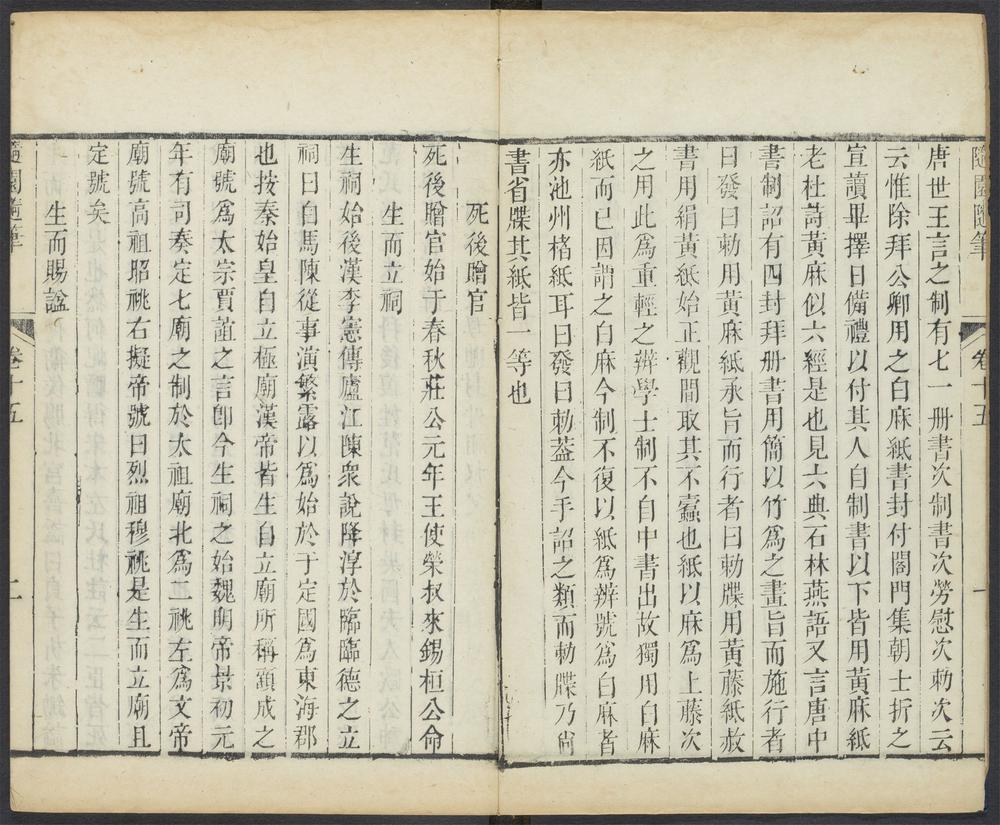 隨園隨筆 卷十五 一
唐世王言之制有七一册書次制書次勞慰次勅次云
云惟除拜公卿用之白麻紙書封付閤門集朝士折之
宣讀畢擇日備禮以付其人自制書以下皆用黃麻紙
老杜詩黃麻似六經是也見六典石林燕語又言唐中
書制詔有四封拜册書用簡以竹爲之畫旨而施行者
曰發曰勅用黃麻紙承旨而行者曰勅牒用黃藤紙赦
書用絹黃紙始正觀間取其不蠧也紙以麻爲上藤次
之用此爲重輕之辨學士制不自中書出故獨用白麻
紙而已因謂之白麻今制不復以紙爲辨號爲白麻者
亦池州楮紙耳曰發曰勅葢今手詔之類而勅牒乃尙
書省牒其紙皆一等也
死後贈官
死後贈官始于春秋莊公元年王使榮叔來錫桓公命
生而立祠
生祠始後漢李憲傳廬江陳衆說降淳於臨臨德之立
祠曰白馬陳從事演繁露以爲始於于定國爲東海郡
也按秦始皇自立極廟漢帝皆生自立廟所稱顧成之
廟號爲太宗賈誼之言卽今生祠之始魏明帝景初元
年有司奏定七廟之制於太祖廟北爲二祧左爲文帝
廟號高祖昭祧右擬帝號曰烈祖穆祧是生而立廟且
定號矣
生而賜諡
隨園隨筆 卷十五 二